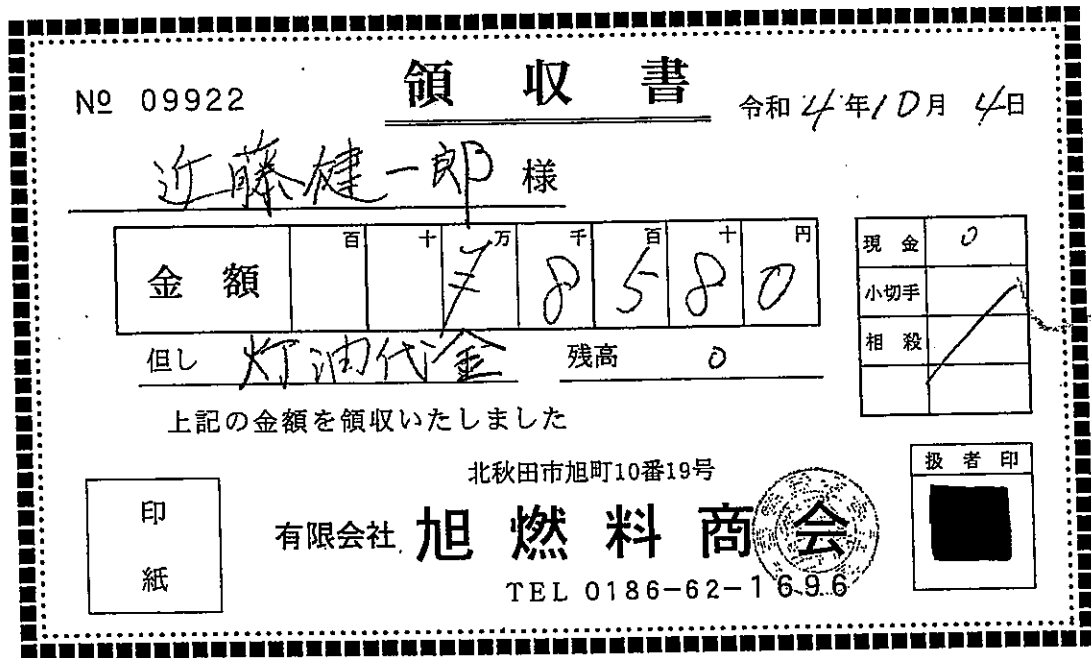 № 09922
領収書
令和4年10月4日
近藤健一郎 様
百 十 万 千 百 十 円
金額 ¥8580
但し 灯油代金 残高 0
上記の金額を領収いたしました
現金 0
小切手
相殺
印紙
北秋田市旭町10番19号
有限会社 旭燃料商会
TEL 0186-62-1696
扱者印